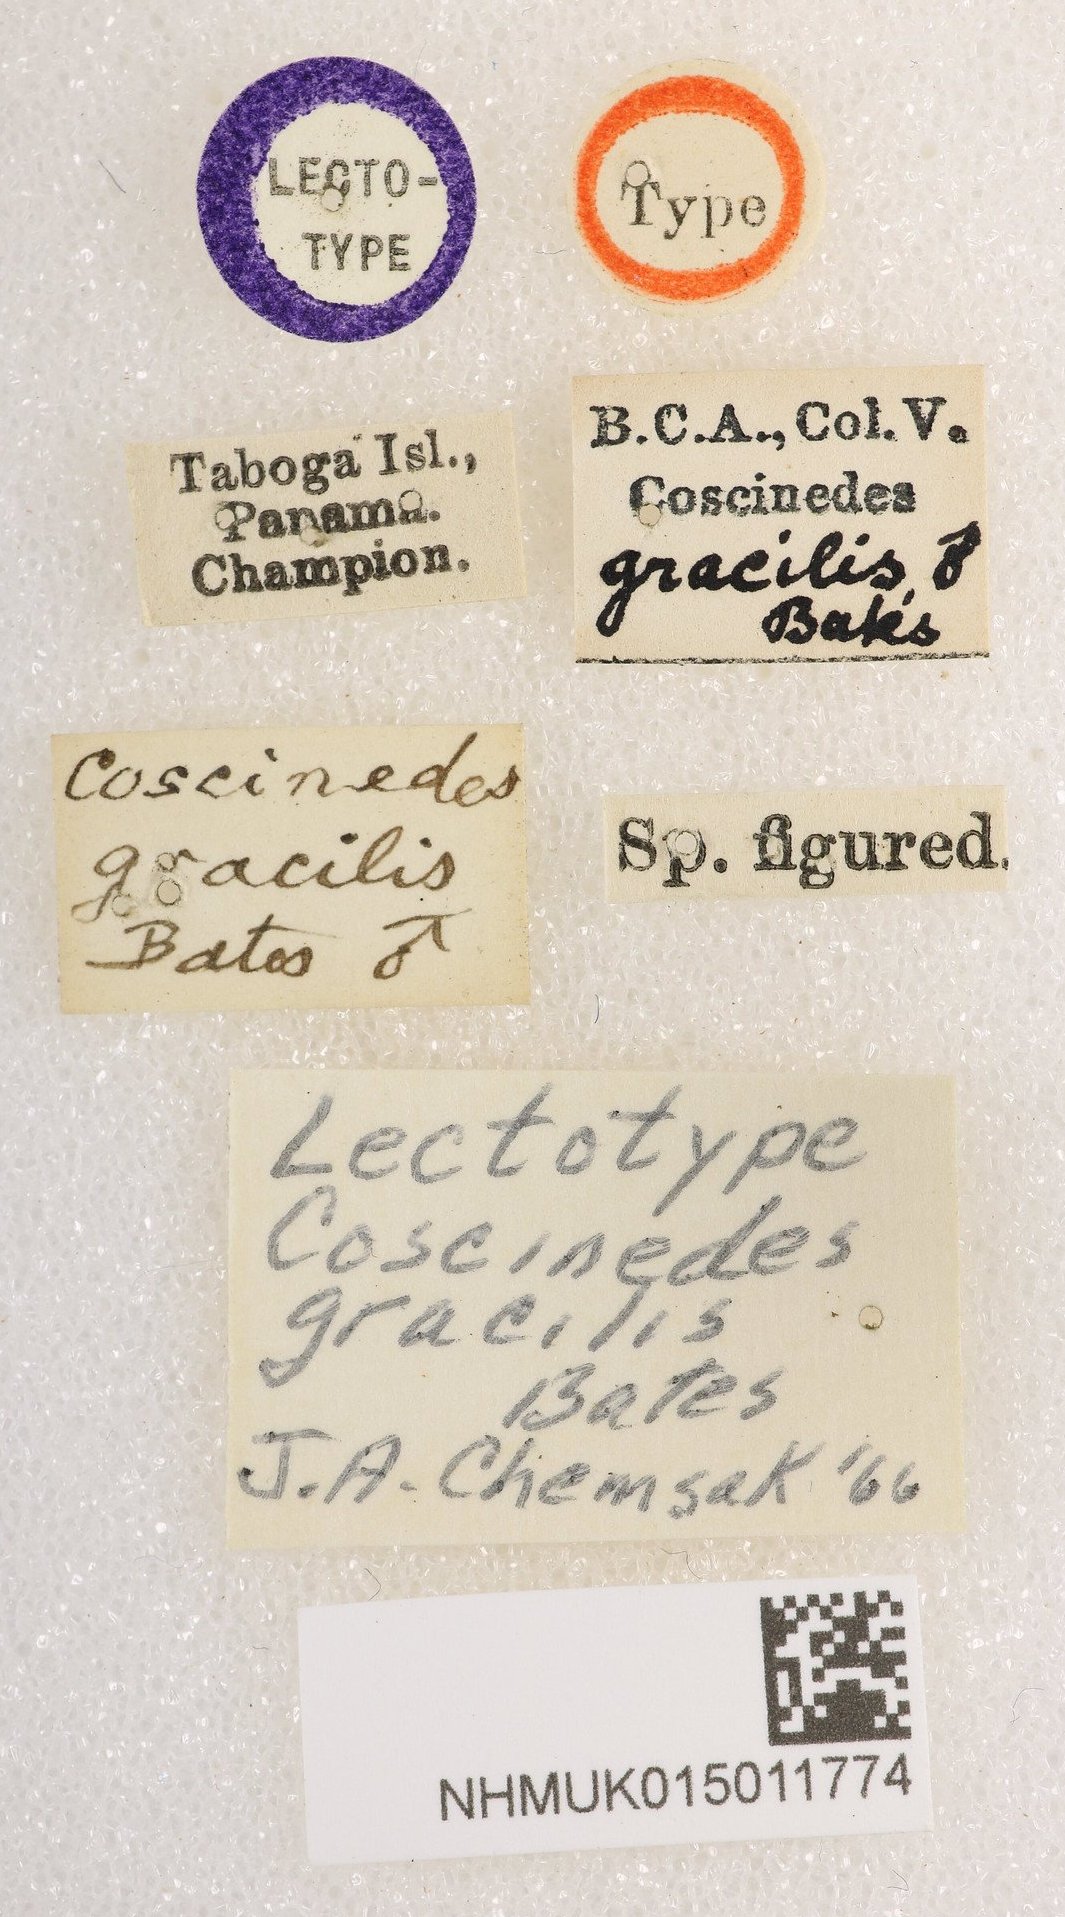 LECTO-
TYPE
Type
Taboga Isl.,
Panama.
Champion.
B.C.A., Col. V.
Coscinedes
gracilis, ♂
Bates
Coscinedes
gracilis
Bates ♂
Sp. figured.
Lectotype
Coscinedes
gracilis
Bates
J.A. Chemsak '66
NHMUK015011774